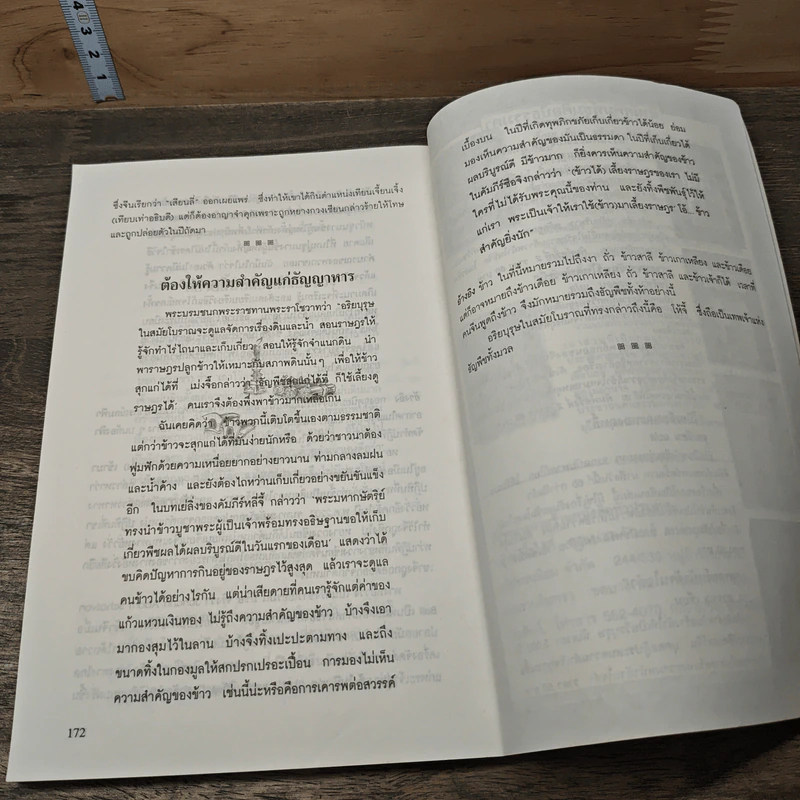 ซึ่งจีนเรียกว่า "เสียนลี่" ออกเผยแพร่ ซึ่งทำให้เขาได้กินตำแหน่งเทียนเจี้ยนเจิ้ง
(เทียบเท่าอธิบดี) แต่ก็ต้องอาญาจำคุกเพราะถูกหยางกวงเซียนกล่าวร้ายให้โทษ
และถูกปล่อยตัวในปีถัดมา
ต้องให้ความสำคัญแก่ธัญญาหาร
พระบรมชนกพระราชทานพระราโชวาทว่า "อริยบุรุษ
ในสมัยโบราณจะดูแลจัดการเรื่องดินและน้ำ สอนราษฎรให้
รู้จักทำไร่ไถนาและเก็บเกี่ยว สอนให้รู้จักจำแนกดิน นำ
พาราษฎรปลูกข้าวให้เหมาะกับสภาพดินนั้นๆ เพื่อให้ข้าว
สุกแก่ได้ที่ เม่งจื๊อกล่าวว่า 'ธัญพืชสุกแก่ได้ที่ ก็ใช้เลี้ยงดู
ราษฎรได้' คนเราจึงต้องพึ่งพาข้าวมากเหลือเกิน
ฉันเคยคิดว่า ข้าวพวกนี้เติบโตขึ้นเองตามธรรมชาติ
แต่กว่าข้าวจะสุกแก่ได้ที่มันง่ายนักหรือ ด้วยว่าชาวนาต้อง
ฟูมฟักด้วยความเหนื่อยยากอย่างยาวนาน ท่ามกลางลมฝน
และน้ำค้าง และยังต้องไถหว่านเก็บเกี่ยวอย่างขยันขันแข็ง
อีก ในบทเย่ลิ่งของคัมภีร์หลี่จี้ กล่าวว่า 'พระมหากษัตริย์
ทรงนำข้าวบูชาพระผู้เป็นเจ้าพร้อมทรงอธิษฐานขอให้เก็บ
เกี่ยวพืชผลได้ผลบริบูรณ์ดีในวันแรกของเดือน' แสดงว่าได้
ขบคิดปัญหาการกินอยู่ของราษฎรไว้สูงสุด แล้วเราจะดูแล
คนข้าวได้อย่างไรกัน แต่น่าเสียดายที่คนเรารู้จักแต่ค่าของ
แก้วแหวนเงินทอง ไม่รู้ถึงความสำคัญของข้าว บ้างจึงเอา
มากองสุมไว้ในลาน บ้างจึงทิ้งเปะปะตามทาง และถึง
ขนาดทิ้งในกองมูลให้สกปรกเปรอะเปื้อน การมองไม่เห็น
ความสำคัญของข้าว เช่นนี้น่ะหรือคือการเคารพต่อสวรรค์
172
เบื้องบน ในปีที่เกิดทุพภิกขภัยเก็บเกี่ยวข้าวได้น้อย ย่อม
มองเห็นความสำคัญของมันเป็นธรรมดา ในปีที่เก็บเกี่ยวได้
ผลบริบูรณ์ดี มีข้าวมาก ก็ยิ่งควรเห็นความสำคัญของข้าว
ในคัมภีร์ซือจิงกล่าวว่า '(ข้าวได้) เลี้ยงราษฎรของเรา ไม่มี
ใครที่ไม่ได้รับพระคุณนี้ของท่าน และยังทิ้งพืชพันธุ์ไว้ให้
แก่เรา พระเป็นเจ้าให้เราใช้(ข้าว)มาเลี้ยงราษฎร' โอ้...ข้าว
สำคัญยิ่งนัก"
อ้างอิง ข้าว ในที่นี้หมายรวมไปถึงงา ถั่ว ข้าวสาลี ข้าวเกาเหลียง และข้าวเดือย
แต่ก็อาจหมายถึงข้าวเดือย ข้าวเกาเหลียง ถั่ว ข้าวสาลี และข้าวเจ้าก็ได้ เวลาที่
คนจีนพูดถึงข้าว จึงมักหมายรวมถึงธัญพืชทั้งห้าอย่างนี้
อริยบุรุษในสมัยโบราณที่ทรงกล่าวถึงนี้คือ โห้จี้ ซึ่งถือเป็นเทพเจ้าแห่ง
ธัญพืชทั้งมวล
4
3
2
1